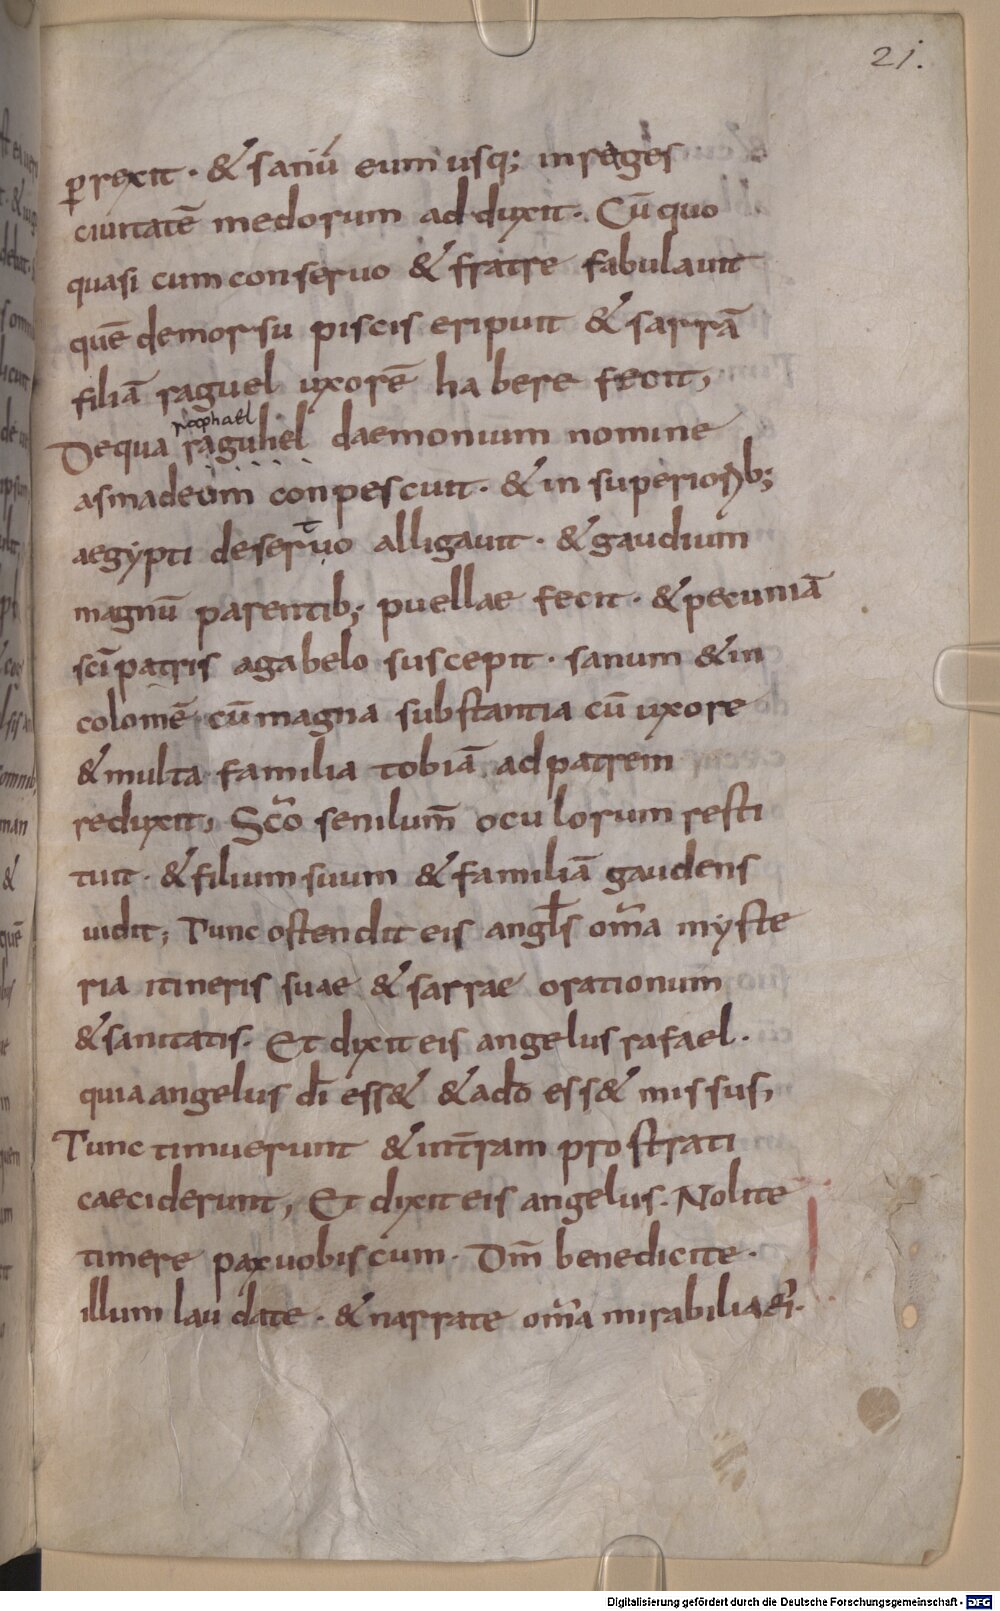 21.
ꝑrexit · & saniū eum usq; in rages
ciuitatē medorum adduxit · Cū quo
quasi cum conseruo & fratre fabulauit
quē demorsu piscis eripuit & sarrā
filiā raguel uxorē habere fecit;
Raphael
De qua raguhel daemonium nomine
asmadeum conpescuit · & in superiorib;
aegypti deseruo alligauit · & gaudium
magnū parentib; puellae fecit · & pecuniā
sci patris agabelo suscepit · sanum & in
colomē cū magna substantia cū uxore
& multa familia tobiā ad patrem
reduxit; Sc̄o seni lum̄ oculorum resti
tuit · & filium suum & familiā gaudens
uidit; Tunc ostendit eis angl̄s om̄a myste
ria itineris suae & sarrae orationum
& sanitatis · Et dixit eis angelus rafael ·
quia angelus dī ess& & ado ess& missus;
Tunc timuerunt & in t̄ram prostrati
caeciderunt; Et dixit eis angelus · Nolite
timere pax uobiscum · Dm̄ benedicite ·
illum laudate · & narrate om̄a mirabilia ei ·
Digitalisierung gefördert durch die Deutsche Forschungsgemeinschaft - DFG